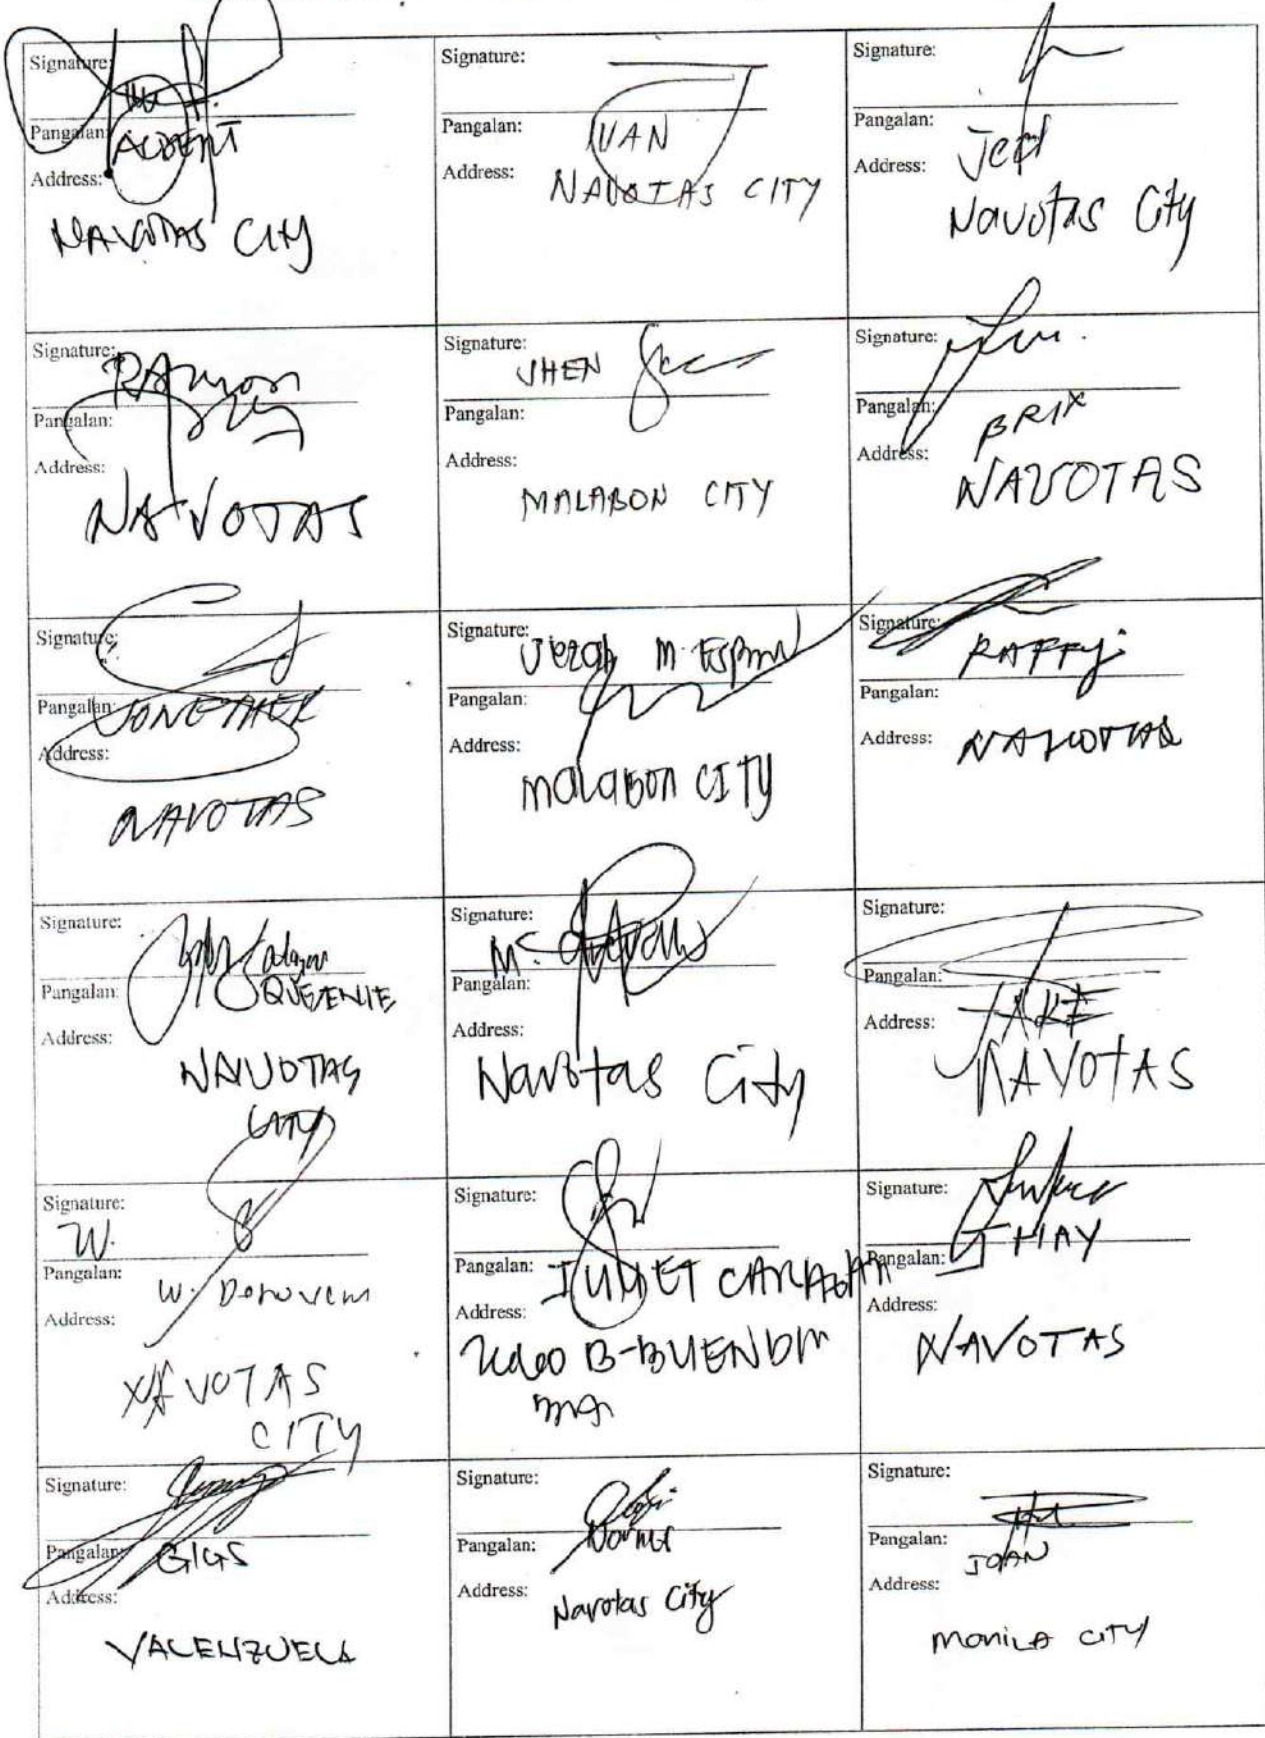 Signature:
Pangalan:
ALDENT
Address:
NAVOTAS CITY
Signature:
Pangalan:
IVAN
Address:
NAVOTAS CITY
Signature:
Pangalan:
Jed
Address:
Navotas City
Signature:
RAmon
Pangalan:
Address:
NAVOTAS
Signature:
JHEN
Pangalan:
Address:
MALABON CITY
Signature:
Pangalan:
BRIX
Address:
NAVOTAS
Signature:
Pangalan:
Address:
NAVOTAS
Signature:
Pangalan:
Address:
malabon CITY
Signature:
RAFFY
Pangalan:
Address:
NAVOTAS
Signature:
Pangalan:
QUEENIE
Address:
NAVOTAS
CITY
Signature:
Pangalan:
Address:
Navotas City
Signature:
Pangalan:
JAKE
Address:
NAVOTAS
Signature:
W.
Pangalan:
W. Donovem
Address:
NAVOTAS
CITY
Signature:
Pangalan:
Address:
Signature:
Pangalan:
JHAY
Address:
NAVOTAS
Signature:
Pangalan:
GIGS
Address:
VALENZUELA
Signature:
Pangalan:
Norma
Address:
Navotas City
Signature:
Pangalan:
JOAN
Address:
maniLA CITY